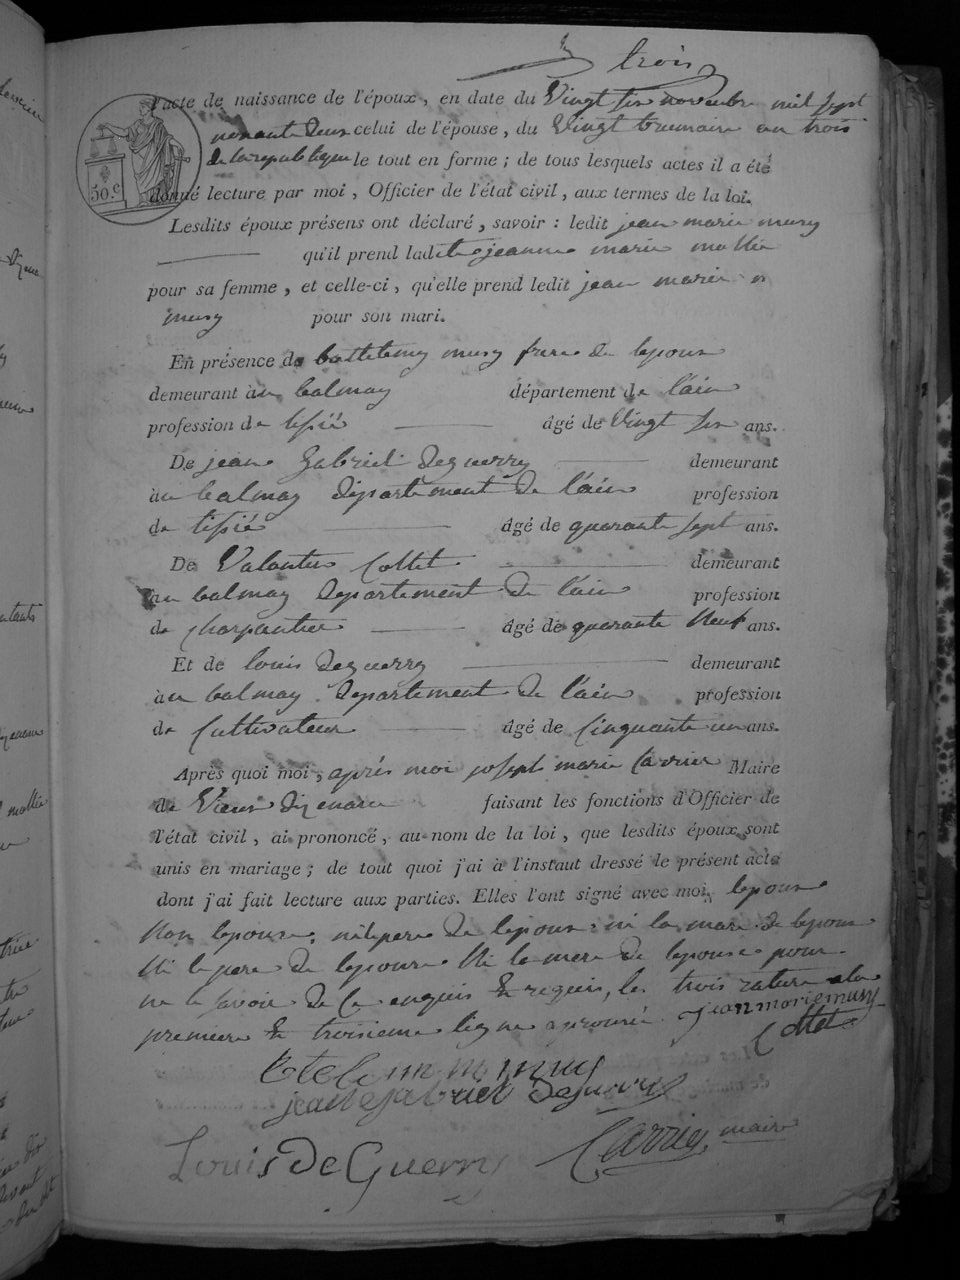 trois
l'acte de naissance de l'époux, en date du Vingt six novembre mil sept
nonant deux celui de l'épouse, du Vingt brumaire an trois
de la republique le tout en forme; de tous lesquels actes il a été
donné lecture par moi, Officier de l'état civil, aux termes de la loi.
50.c
Lesdits époux présens ont déclaré, savoir: ledit jean marie musy
qu'il prend ladite jeanne marie mollie
pour sa femme, et celle-ci, qu'elle prend ledit jean marie
musy pour son mari.
En présence de musy frere de lepoux
demeurant au balmay département de l'ain
profession de tissié âgé de Vingt six ans.
De jean Gabriel deguerry demeurant
au balmay département de l'ain profession
de tissié âgé de quarante sept ans.
De Valantin Collet demeurant
au balmay departement de l'ain profession
de charpantier âgé de quarante Neuf ans.
Et de louis deguerry demeurant
au balmay departement de l'ain profession
de Cultivateur âgé de Cinquante un ans.
Après quoi moi, après moi joseph marie Carrier Maire
de Vieux dizenave faisant les fonctions d'Officier de
l'état civil, ai prononcé, au nom de la loi, que lesdits époux sont
unis en mariage; de tout quoi j'ai à l'instaut dressé le présent acte
dont j'ai fait lecture aux parties. Elles l'ont signé avec moi, lepoux
Non lepouse, ni le pere de lepoux ni la mere de lepoux
Ni le pere de lepouse Ni la mere de lepouse pour
ne le savoir de ce enquis & requis, les trois rature a la
premiere & troisieme ligne aprouvé. jean marie musy
Collet
musy
jean gabriel deguerry
Louis De Guerry Carrier maire